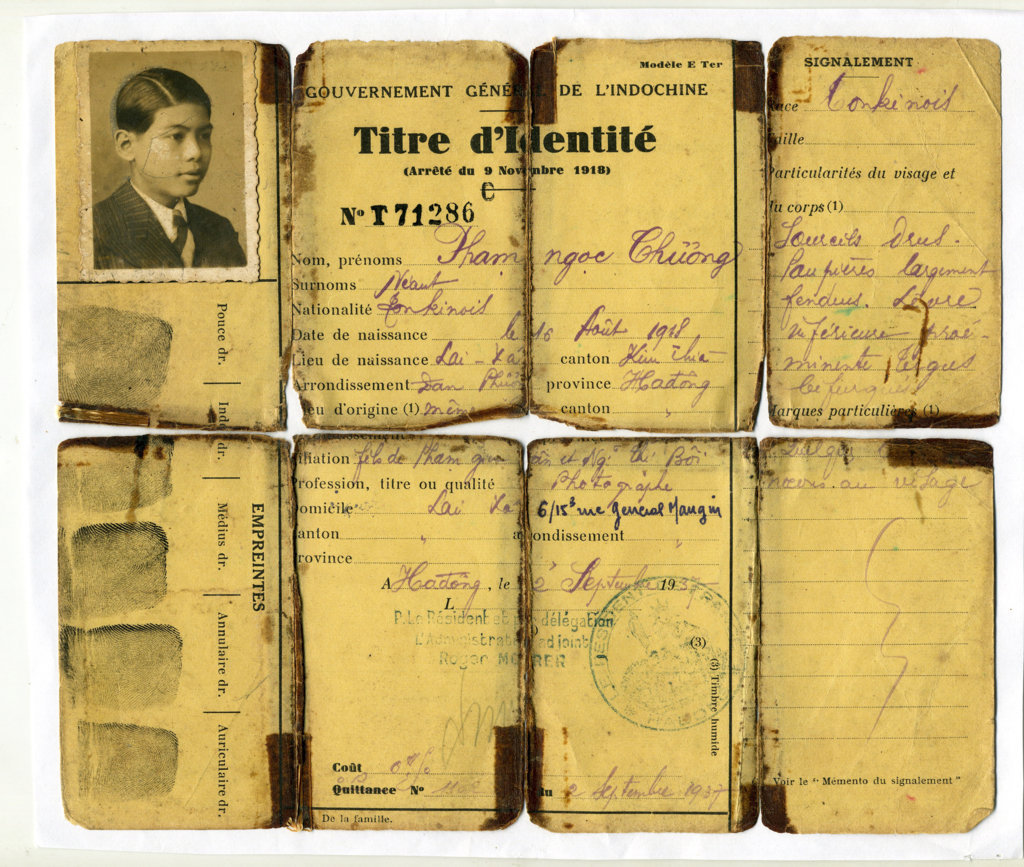 Modèle E Ter
GOUVERNEMENT GÉNÉRAL DE L'INDOCHINE
Titre d'Identité
(Arrêté du 9 Novembre 1918)
C
No T 71286
Nom, prénoms Phạm ngọc Chương
Surnoms Néant
Nationalité Tonkinois
Date de naissance le 16 Août 1918
Lieu de naissance Lai - Xá canton Kim Thia
Arrondissement Dan Phuong province Hadông
Lieu d'origine (1) même canton "
SIGNALEMENT
Race Tonkinois
Taille
Particularités du visage et
du corps (1)
Sourcils drus.
Paupières largement
fendues. Lèvre
inférieure proé-
minente
Marques particulières (1)
Pouce dr.
Index dr.
Médius dr.
Annulaire dr.
Auriculaire dr.
EMPREINTES
Filiation fils de Pham et Ng. thi Bôi
Profession, titre ou qualité Photographe
Domicile Lai Xá 6/15B rue général Mangin
Canton " arrondissement "
Province
A Hadông, le 2 Septembre 1937
L
P. Le Résident et par délégation
L'Administrateur adjoint
Roger
(3)
(3) Timbre humide
Coût
Quittance No du 2 Septembre 1937
De la famille.
au visage
Voir le "Mémento du signalement"